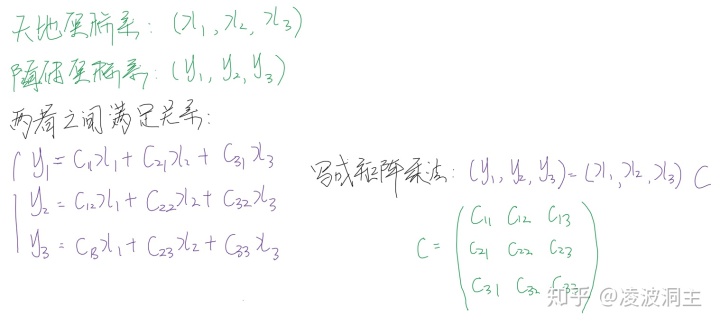 天地坐标系：(x₁, x₂, x₃)
随体坐标系：(y₁, y₂, y₃)
两者之间满足关系：
y₁ = C₁₁x₁ + C₂₁x₂ + C₃₁x₃
y₂ = C₁₂x₁ + C₂₂x₂ + C₃₂x₃
y₃ = C₁₃x₁ + C₂₃x₂ + C₃₃x₃
写成矩阵乘法：(y₁, y₂, y₃) = (x₁, x₂, x₃) C
C =
C₁₁ C₁₂ C₁₃
C₂₁ C₂₂ C₂₃
C₃₁ C₃₂ C₃₃
知乎 @凌波洞主